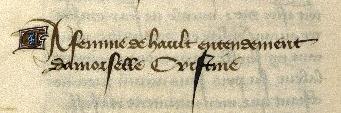 A femme de hault entendement
damoiselle Cristine